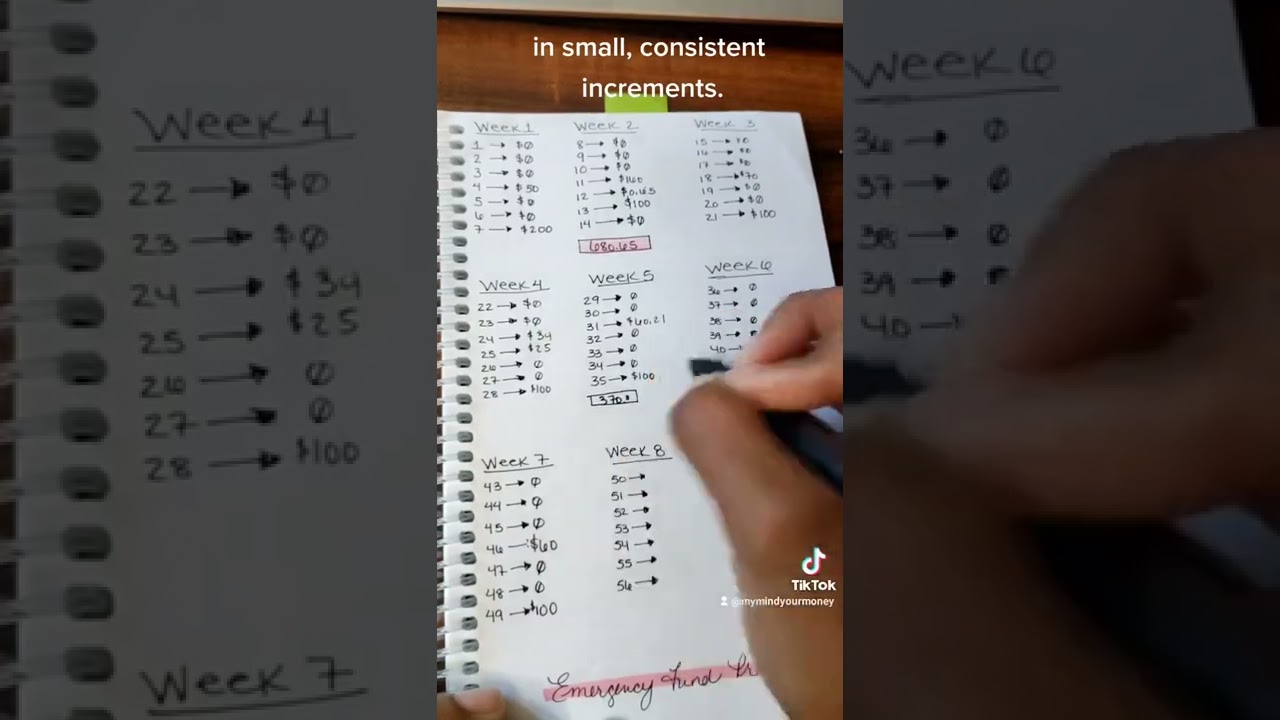 in small, consistent
increments.
Week 1
1 → $0
2 → $0
3 → $0
4 → $50
5 → $0
6 → $0
7 → $200
Week 2
8 → $0
9 → $0
10 → $0
11 → $160
12 → $0.65
13 → $100
14 → $0
680.65
Week 3
15 → $0
16 → $0
17 → $0
18 → $70
19 → $0
20 → $0
21 → $100
Week 4
22 → $0
23 → $0
24 → $34
25 → $25
26 → 0
27 → 0
28 → $100
Week 5
29 → 0
30 → 0
31 → $60.21
32 → 0
33 → 0
34 → 0
35 → $100
Week 6
36 → 0
37 → 0
38 → 0
39 →
40 →
Week 7
43 → 0
44 → 0
45 → 0
46 → $60
47 → 0
48 → 0
49 → $100
Week 8
50 →
51 →
52 →
53 →
54 →
55 →
56 →
Emergency Fund
TikTok
@mymindyourmoney
Week 4
22 → $0
23 → $0
24 → $34
25 → $25
26 → 0
27 → 0
28 → $100
Week 7
Week 6
36 → 0
37 → 0
38 → 0
39 →
40 →